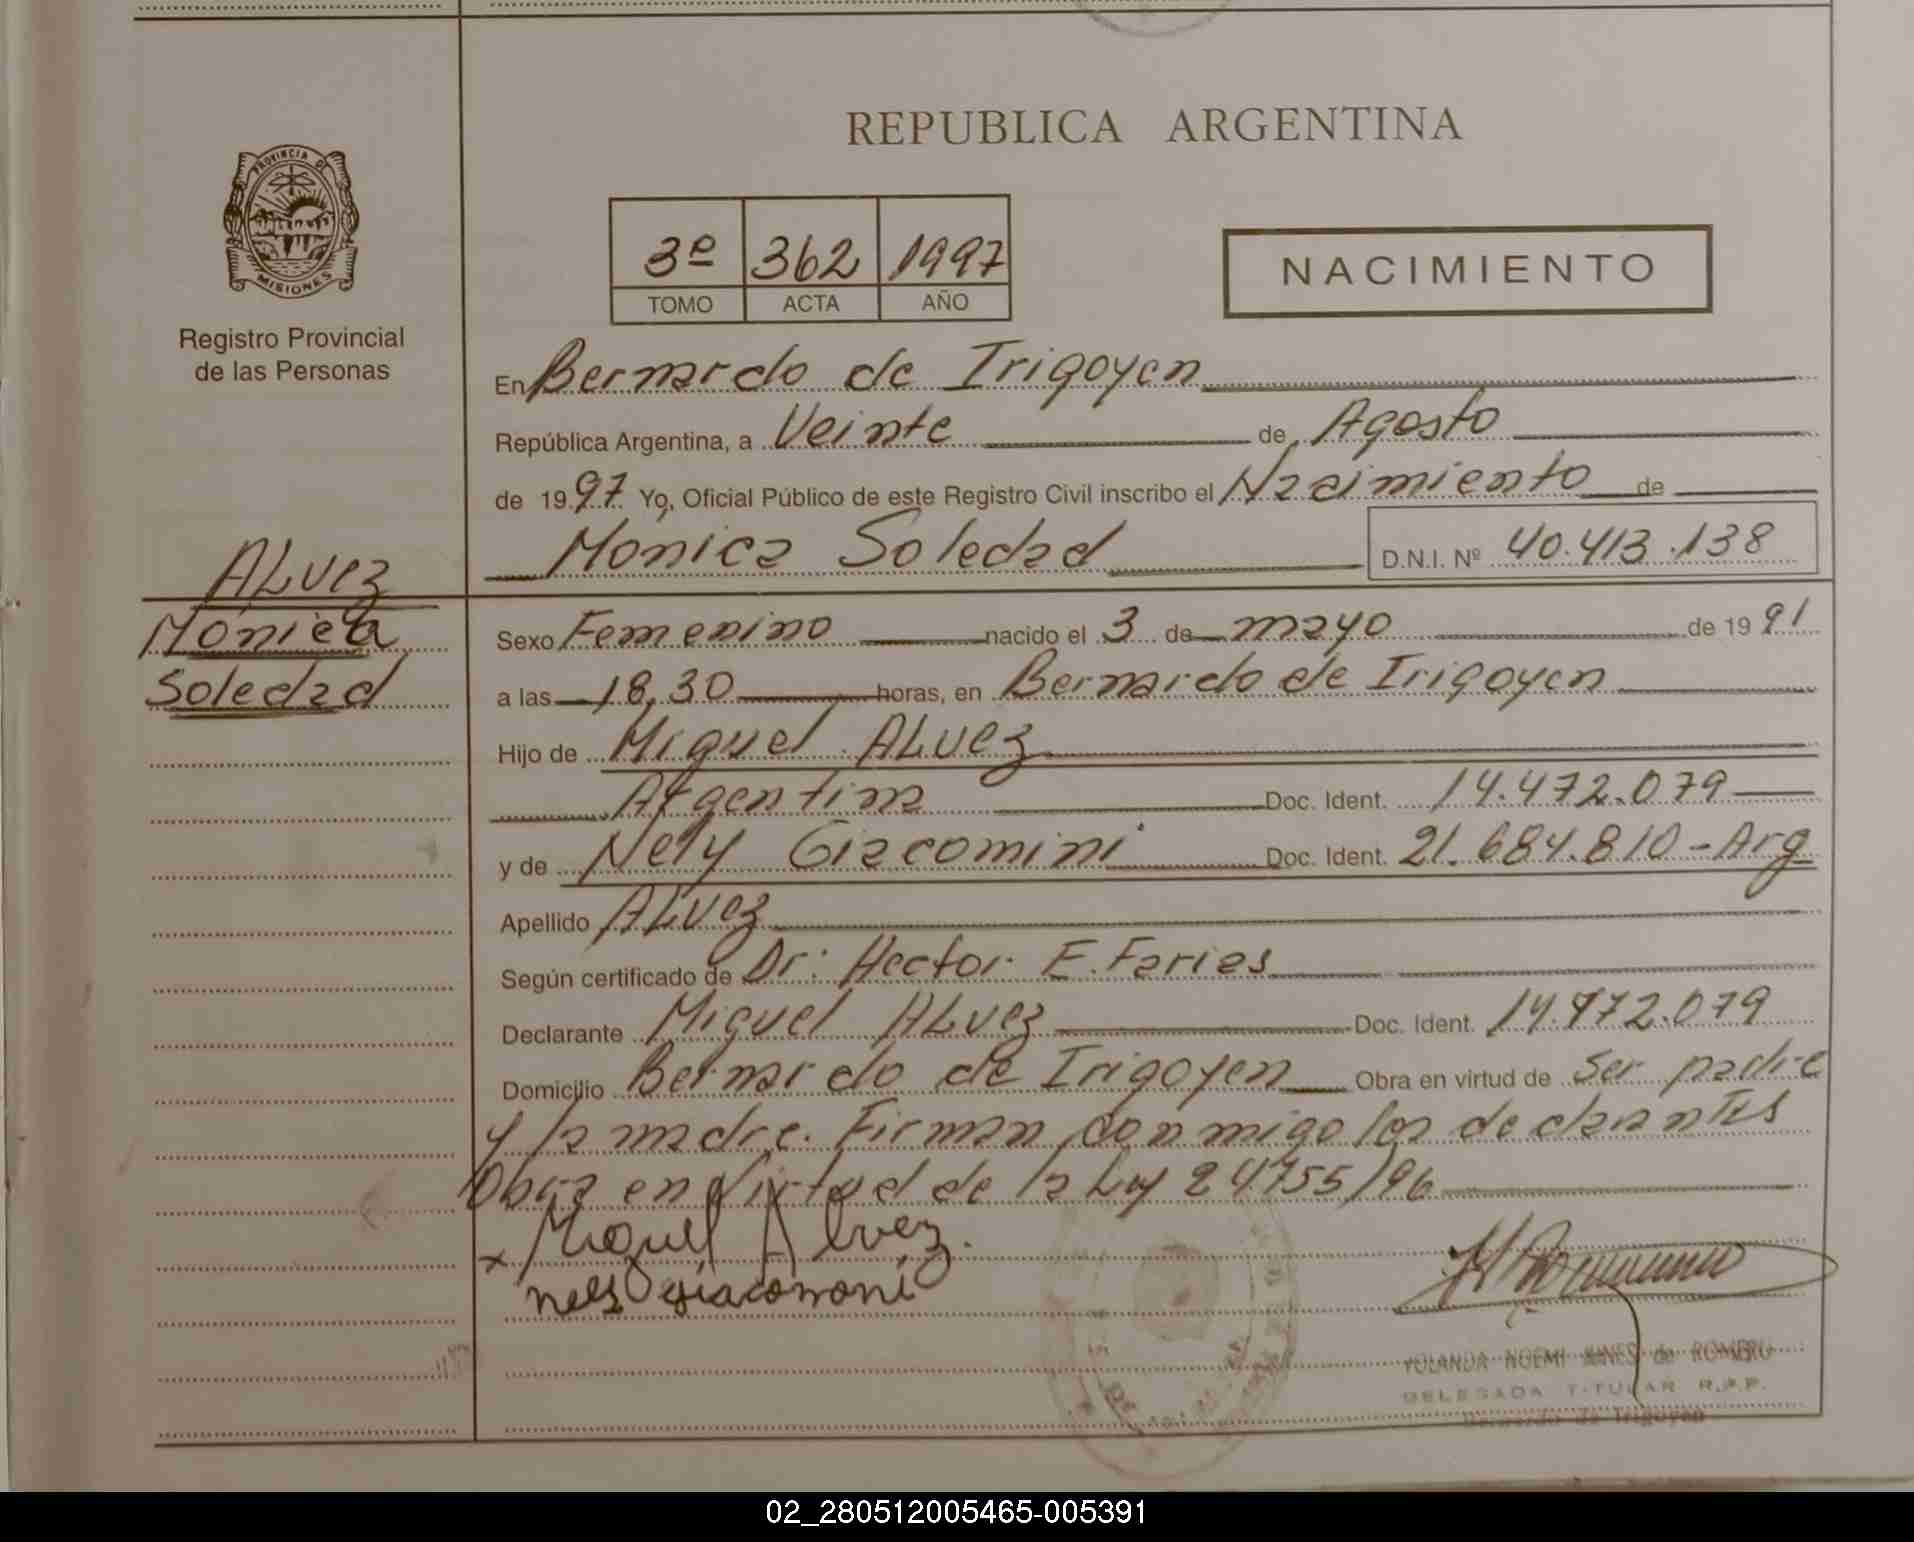 REPUBLICA ARGENTINA
PROVINCIA DE
MISIONES
Registro Provincial
de las Personas
3º 362 1997
TOMO ACTA AÑO
NACIMIENTO
En Bernardo de Irigoyen
República Argentina, a Veinte de Agosto
de 1997 Yo, Oficial Público de este Registro Civil inscribo el Nacimiento de
Mónica Soledad D.N.I. Nº 40.413.138
ALvez
Mónica
Soledad
Sexo Femenino nacido el 3 de mayo de 1991
a las 18,30 horas, en Bernardo de Irigoyen
Hijo de Miguel ALvez
Argentina Doc. Ident. 14.472.079
y de Nely Giacomini Doc. Ident. 21.684.810-Arg
Apellido ALvez
Según certificado de Dr: Hector E. Farias
Declarante Miguel ALvez Doc. Ident. 14.472.079
Domicilio Bernardo de Irigoyen Obra en virtud de ser padre
y la madre. Firman conmigo los declarantes
Obra en Virtud de la Ley 24755/96
x Miguel Alvez.
nely giacomoni
YOLANDA NOEMI NUNES de ROMERO
DELEGADA TITULAR R.P.P.
Bernardo de Irigoyen
02_280512005465-005391